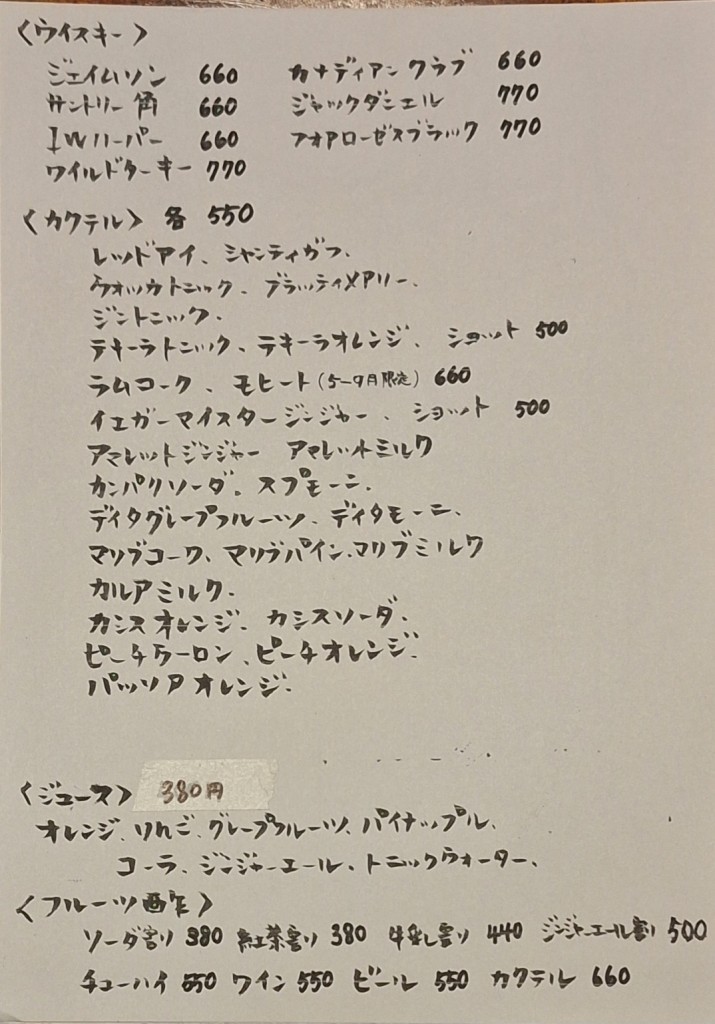 〈ウイスキー〉
ジェイムソン 660 カナディアンクラブ 660
サントリー角 660 ジャックダニエル 770
IWハーパー 660 フォアローゼスブラック 770
ワイルドターキー 770
〈カクテル〉 各 550
レッドアイ、シャンティガフ、
ウオッカトニック、ブラッディメアリー、
ジントニック、
テキーラトニック、テキーラオレンジ、ショット 500
ラムコーク、モヒート(5-9月限定) 660
イエガーマイスタージンジャー、ショット 500
アマレットジンジャー アマレットミルク
カンパリソーダ。スプモーニ、
ディタグレープフルーツ、ディタモーニ、
マリブコーク、マリブパイン、マリブミルク
カルアミルク、
カシスオレンジ、カシスソーダ、
ピーチウーロン、ピーチオレンジ、
パッソアオレンジ、
〈ジュース〉 380円
オレンジ、りんご、グレープフルーツ、パイナップル、
コーラ、ジンジャーエール、トニックウォーター、
〈フルーツ酢〉
ソーダ割り 380 紅茶割り 380 牛乳し割り 440 ジンジャーエール割り 500
チューハイ 550 ワイン 550 ビール 550 カクテル 660